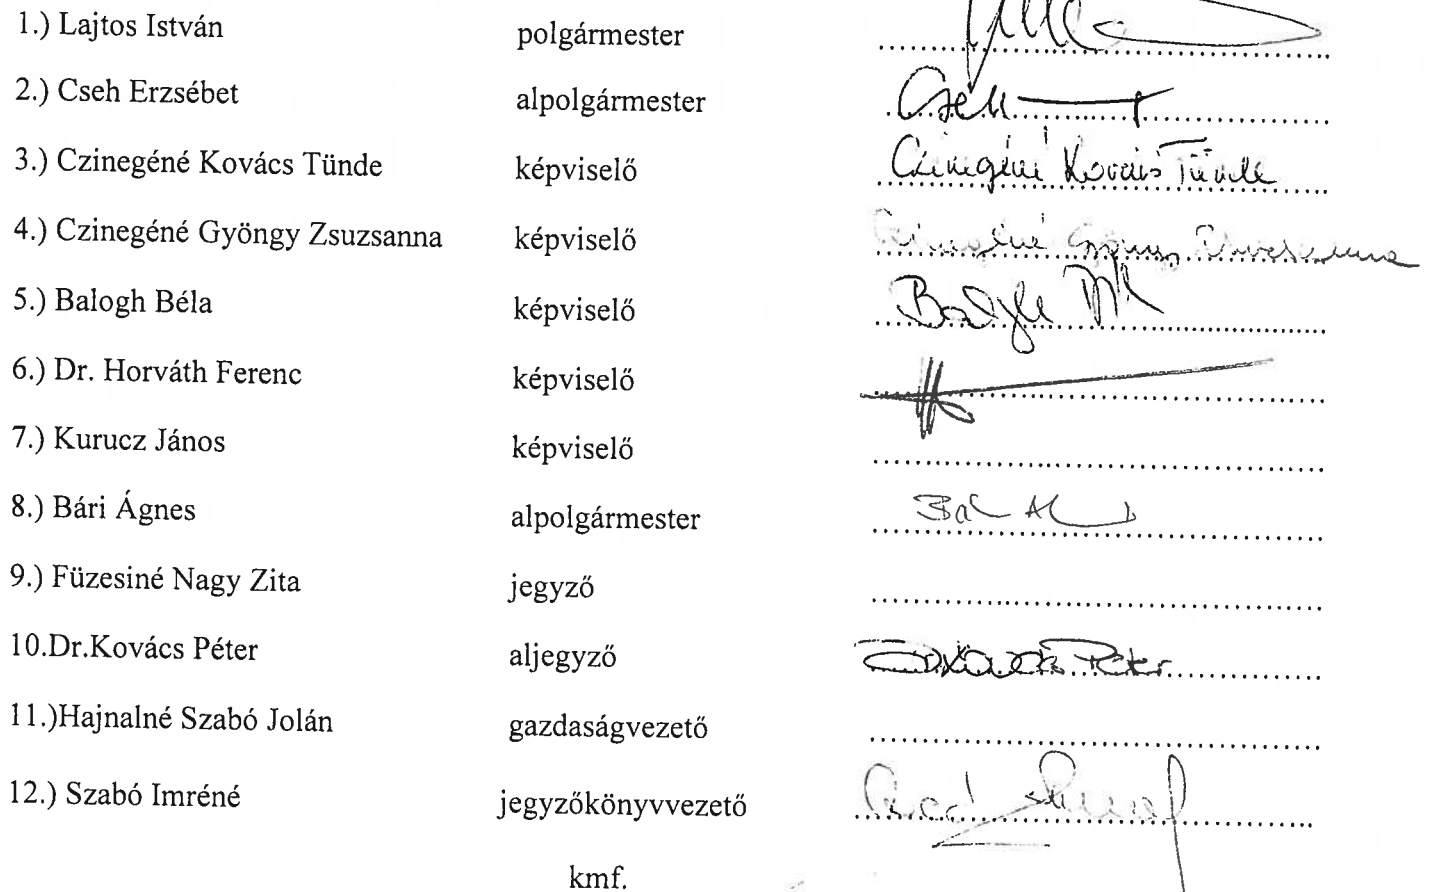 1.) Lajtos István polgármester
2.) Cseh Erzsébet alpolgármester Cseh
3.) Czinegéné Kovács Tünde képviselő Czinegéné Kovács Tünde
4.) Czinegéné Gyöngy Zsuzsanna képviselő Czinegéné Gyöngy Zsuzsanna
5.) Balogh Béla képviselő Balogh
6.) Dr. Horváth Ferenc képviselő
7.) Kurucz János képviselő
8.) Bári Ágnes alpolgármester
9.) Füzesiné Nagy Zita jegyző
10.Dr.Kovács Péter aljegyző Dr. Kovács Péter
11.)Hajnalné Szabó Jolán gazdaságvezető
12.) Szabó Imréné jegyzőkönyvvezető
kmf.